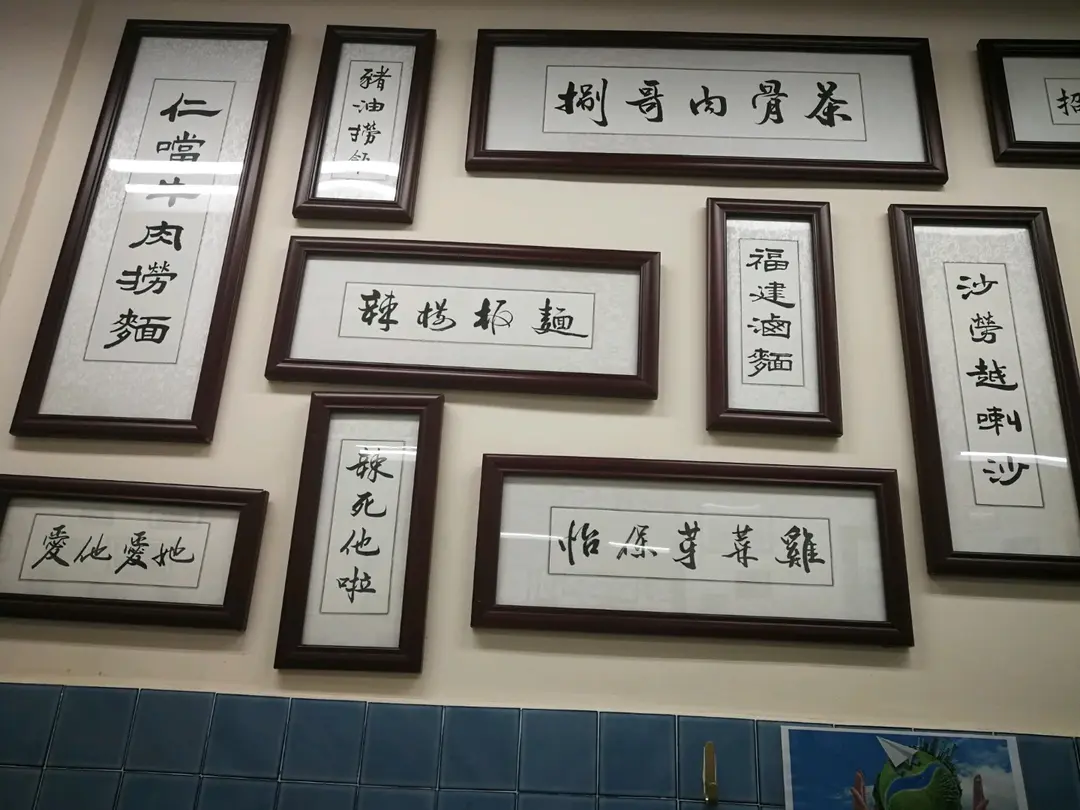 仁噹牛肉撈麵
豬油撈飯
捌哥肉骨茶
招
辣椒板麵
福建滷麵
沙勞越喇沙
愛他愛她
辣死他啦
怡保芽菜雞